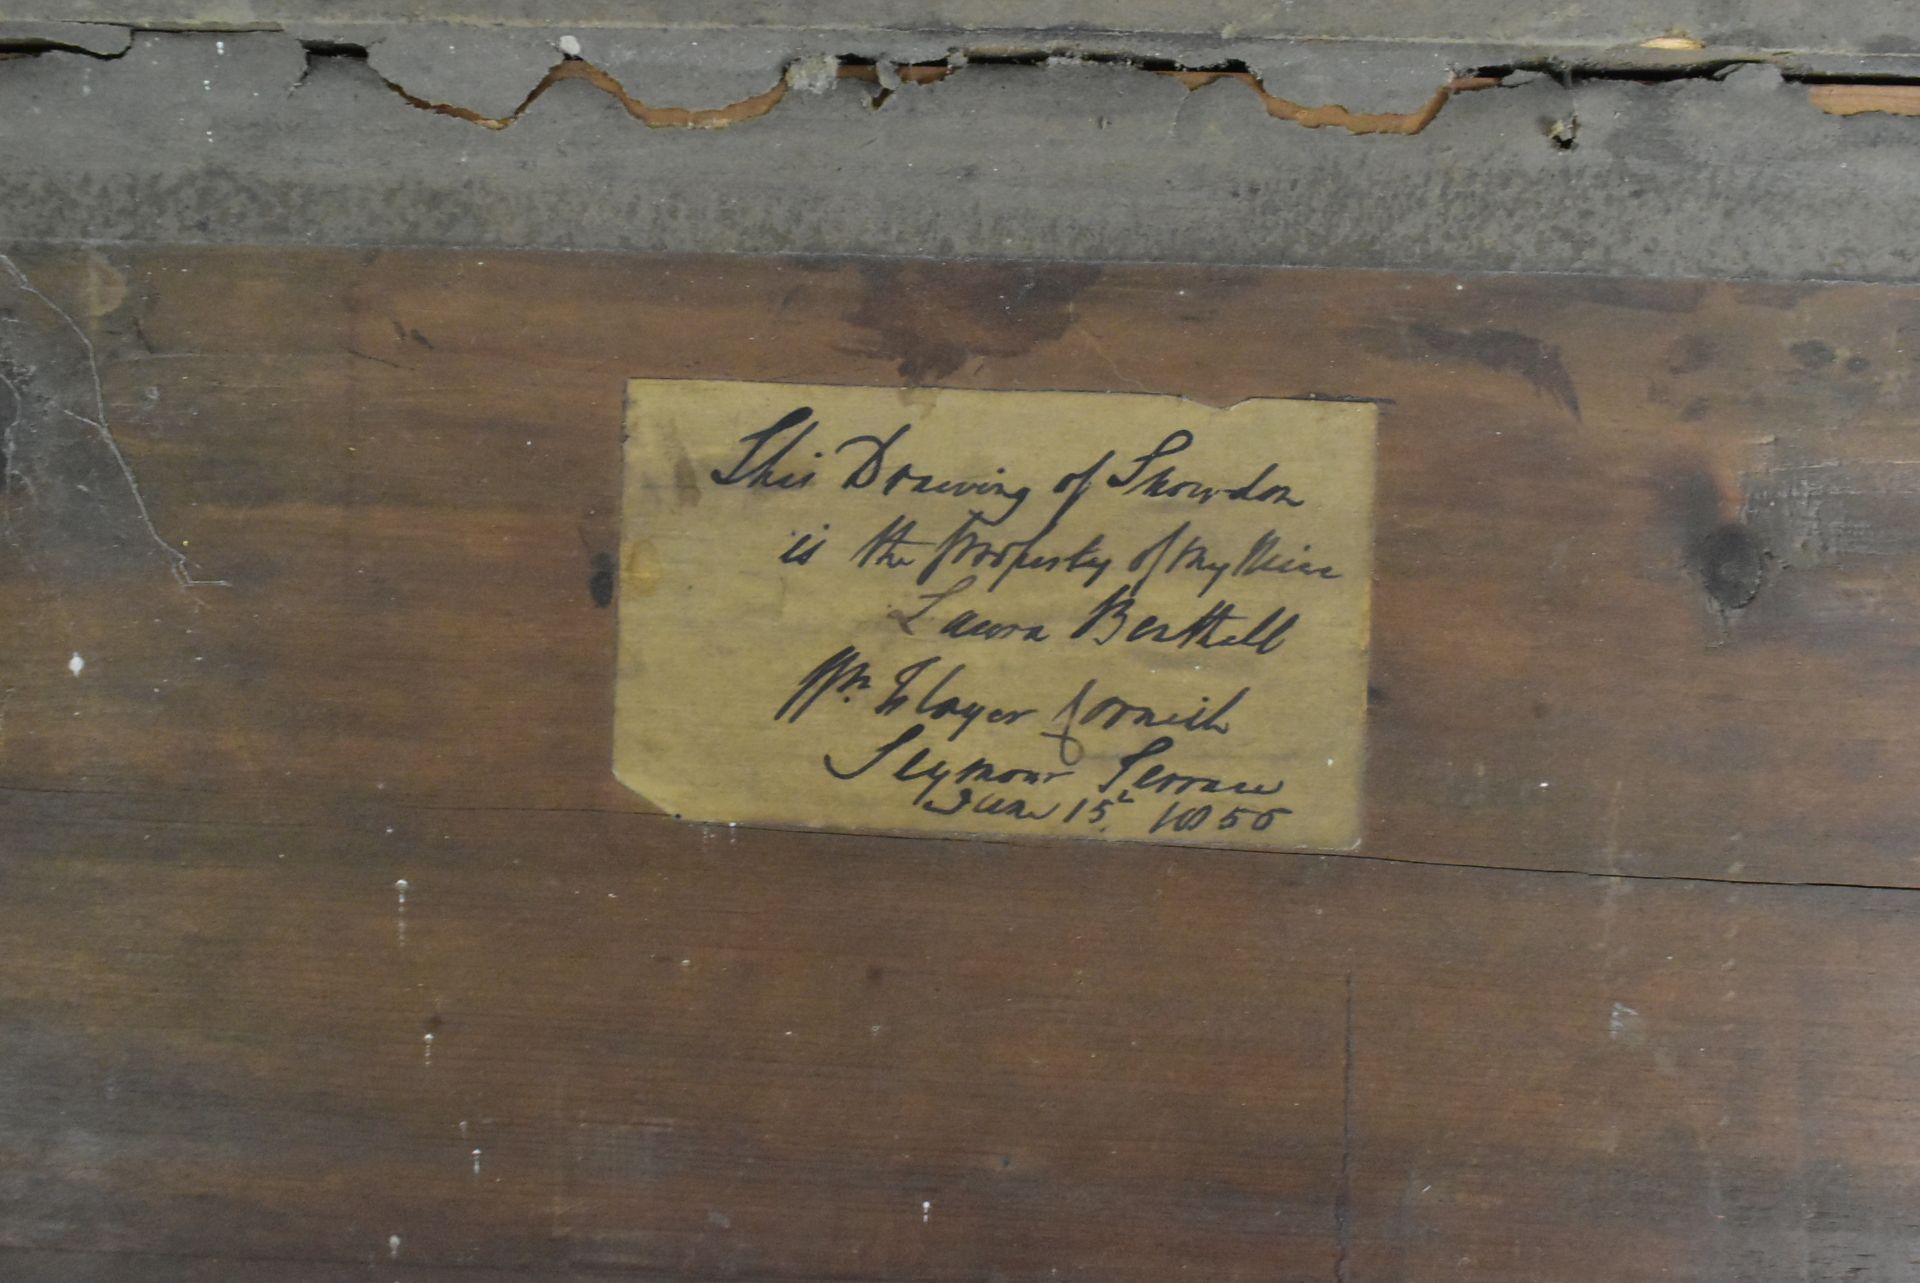 This Drawing of Snowdon
is the property of my Niece
Laura Berthell
Wm. Floyer Cornish
Seymour Terrace
June 15th 1856